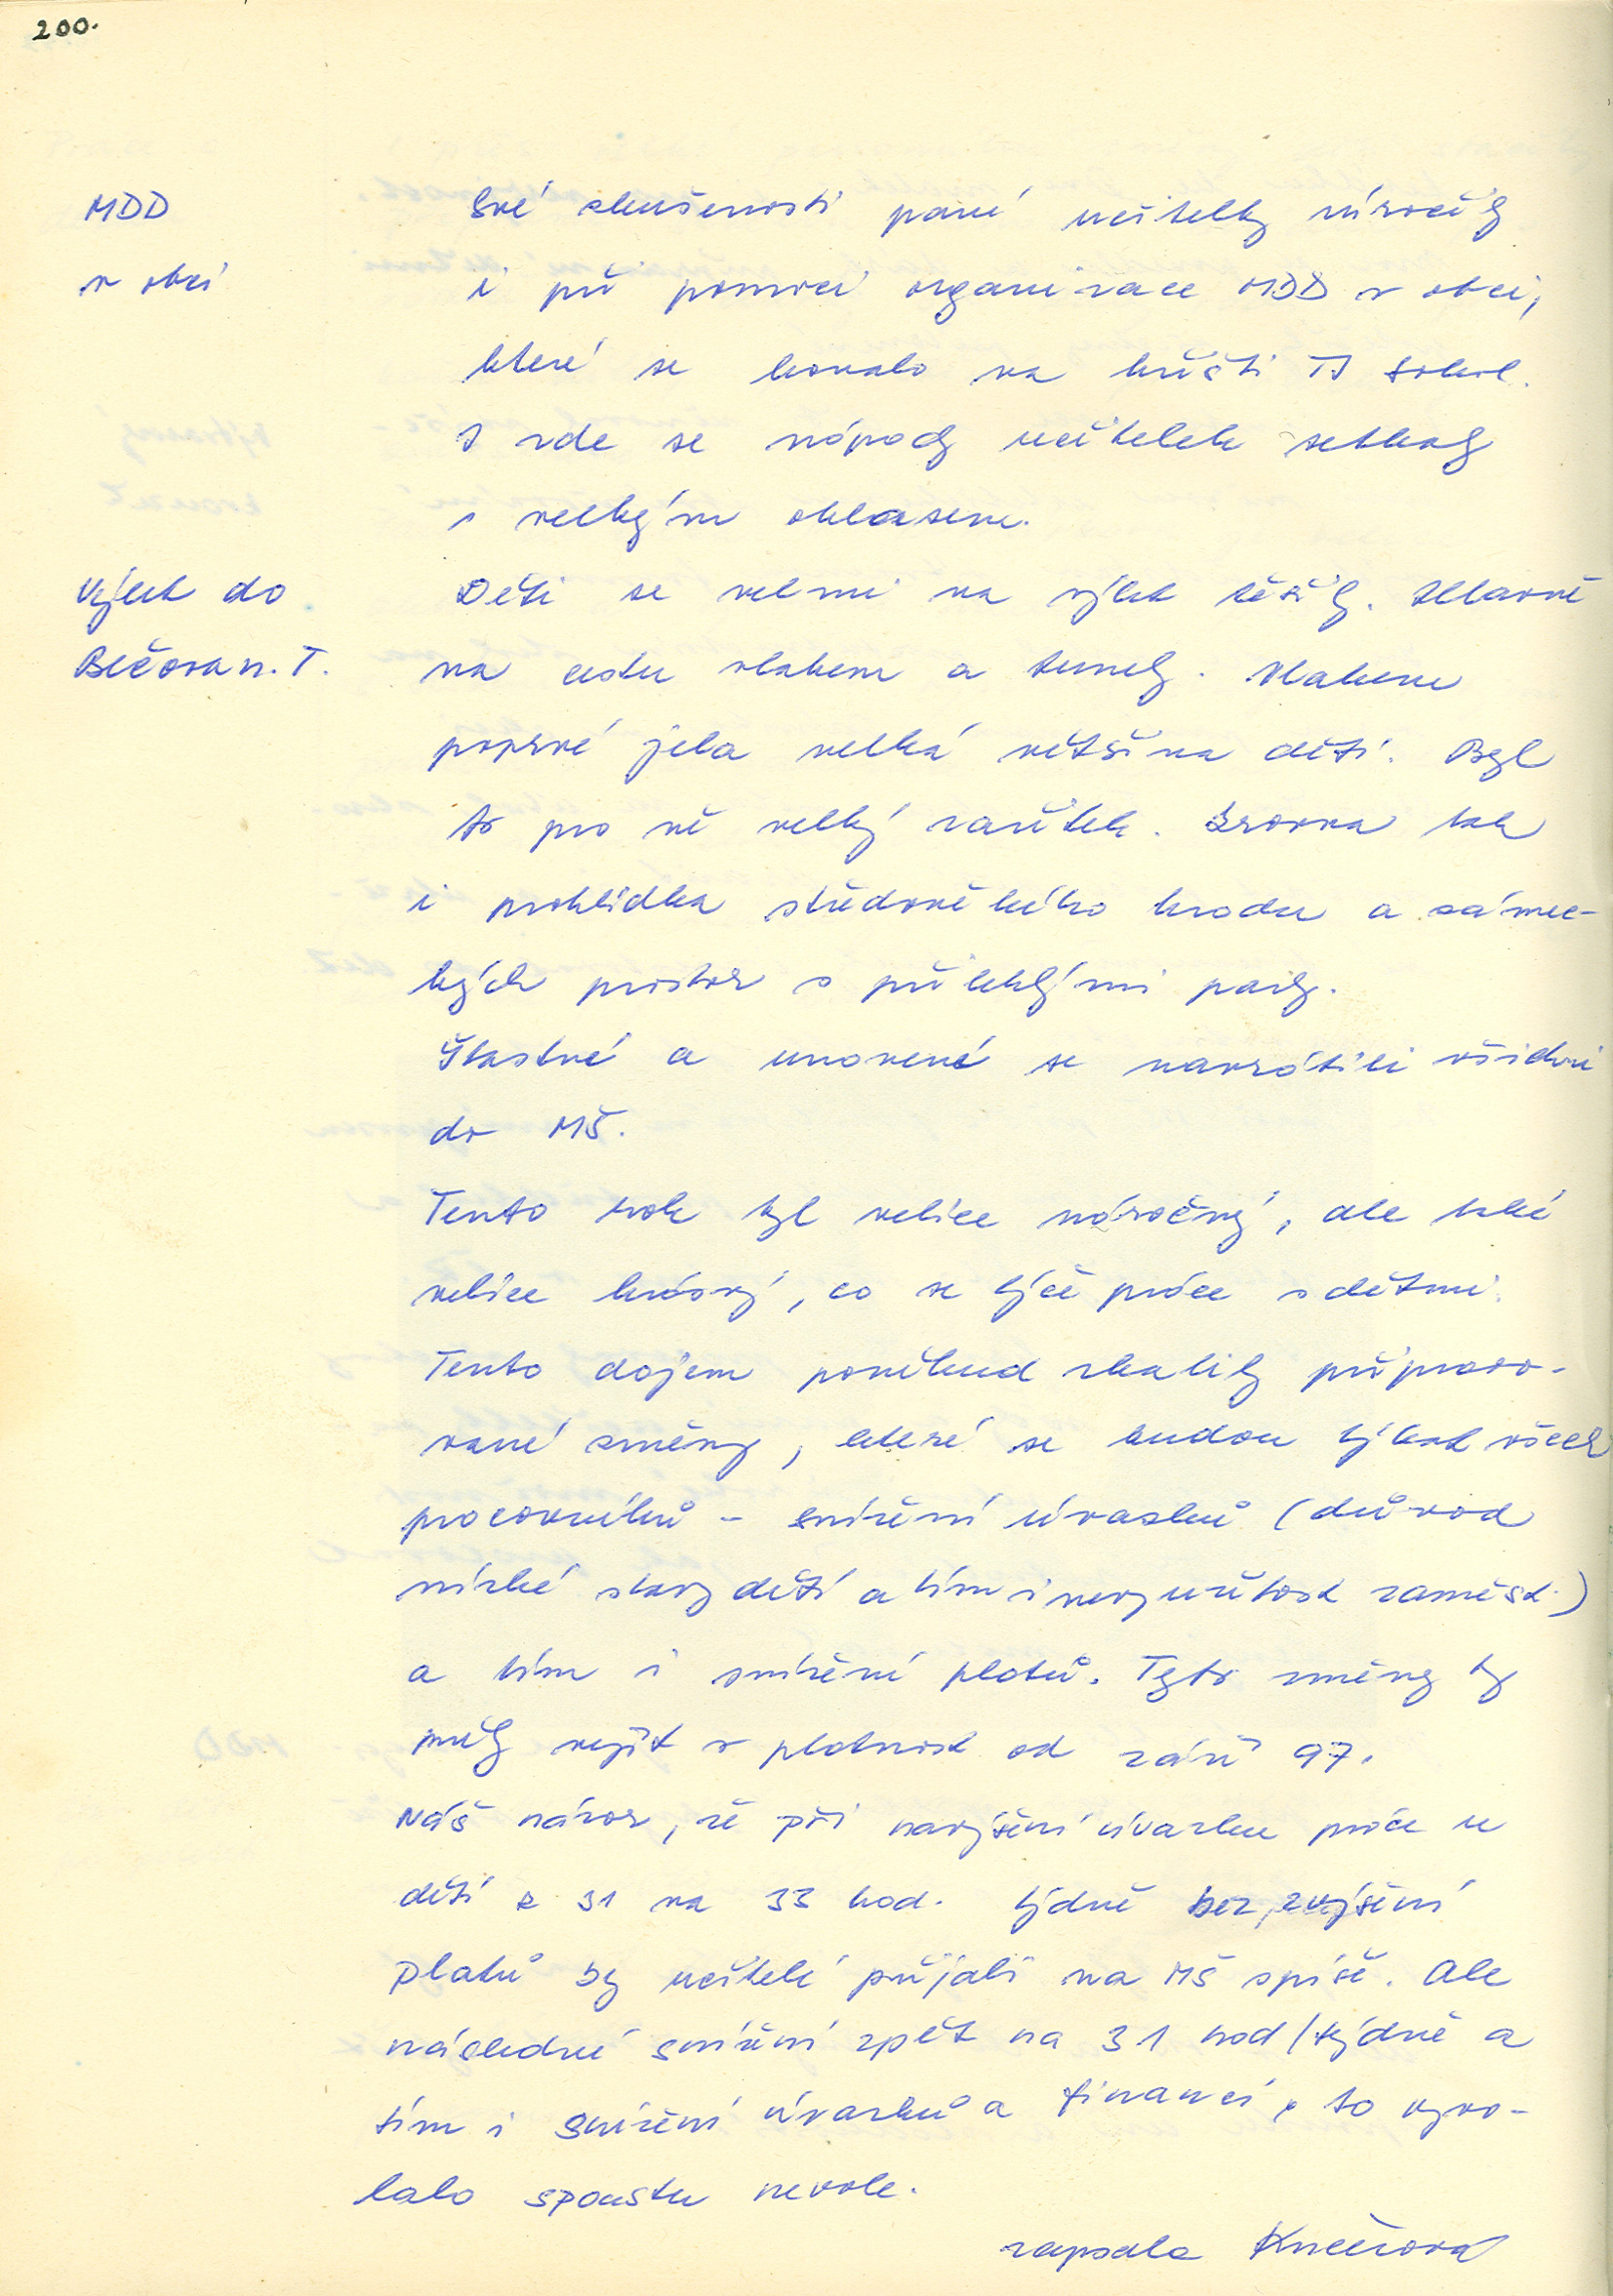 200.
MDD
v obci
Své zkušenosti paní učitelky zúročily
i při pomoci organizace MDD v obci,
které se konalo na hřišti TJ Sokol.
I zde se nápady učitelek setkaly
s velkým ohlasem.
Výlet do
Bečova n. T.
Děti se velmi na výlet těšily. Hlavně
na cestu vlakem a tunely. Vlakem
poprvé jela velká většina dětí. Byl
to pro ně velký zážitek. Zrovna tak
i prohlídka středověkého hradu a zámec-
kých prostor s přilehlými parky.
Šťastné a unavené se navrátili všichni
do MŠ.
Tento rok byl velice náročný, ale také
velice krásný, co se týče práce s dětmi.
Tento dojem poněkud zkalily připravo-
vané změny, které se budou týkat všech
pracovníků - snížení úvazků (důvod
nízké stavy dětí a tím i nevyužitost zaměst.)
a tím i snížení platů. Tyto změny by
měly vejít v platnost od září 97.
Náš názor, že při navýšení úvazku práce u
dětí z 31 na 33 hod. týdně bez zvýšení
platů by učitelé přijali na MŠ spíše. Ale
následné snížení zpět na 31 hod/týdně a
tím i snížení úvazků a financí, to vyvo-
lalo spoustu nevole.
zapsala